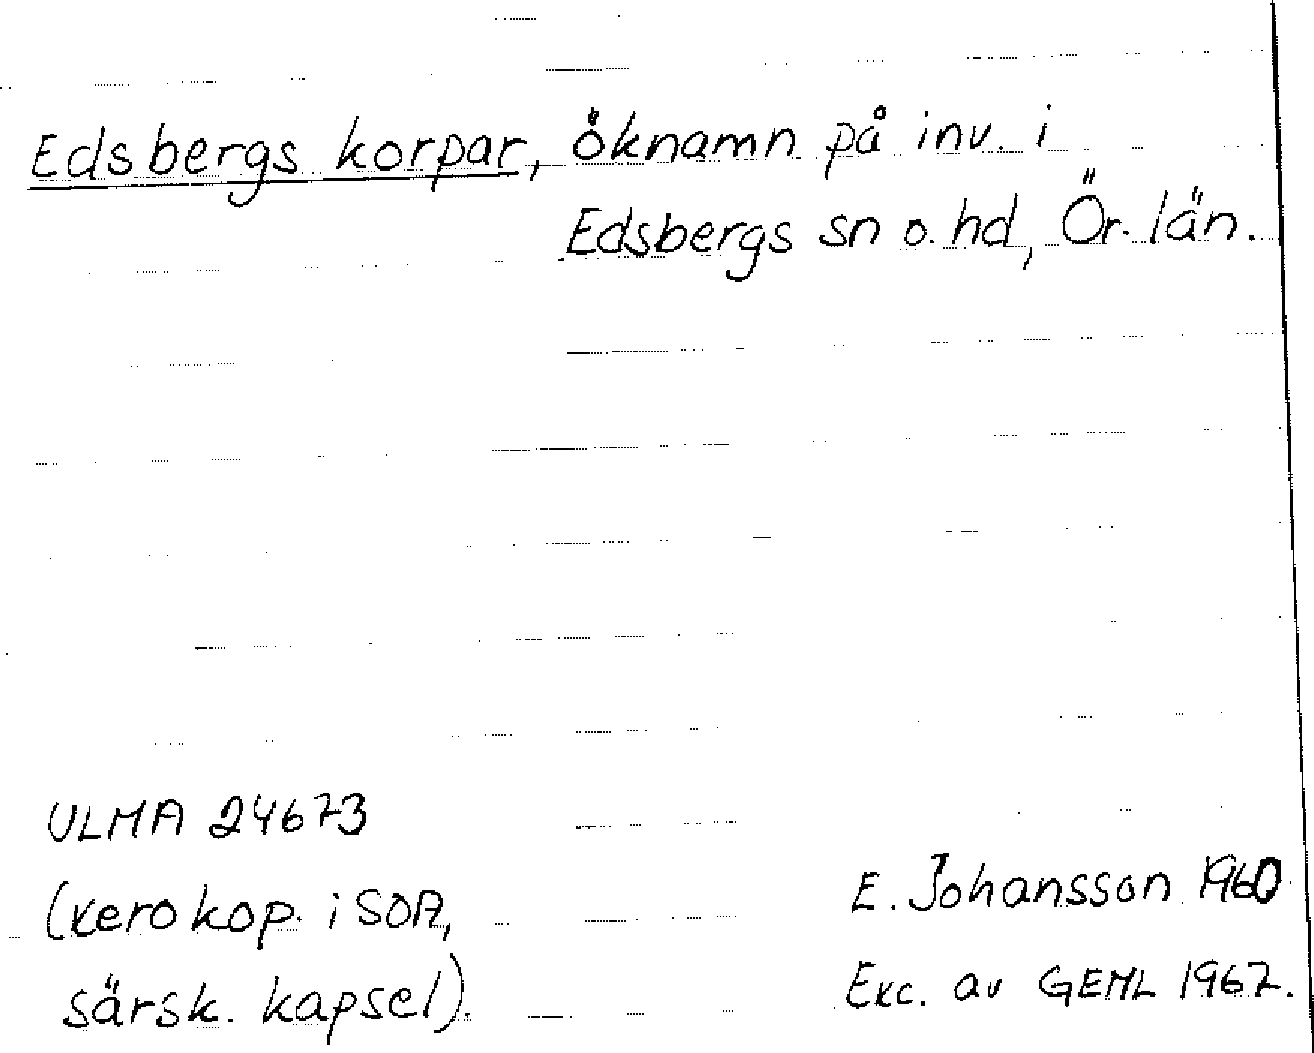 Edsbergs korpar, öknamn på inv. i
Edsbergs sn o. hd, Ör. län.
ULMA 24673
(xerokop. i SOA,
särsk. kapsel).
E. Johansson 1960
Exc. av GEML 1967.